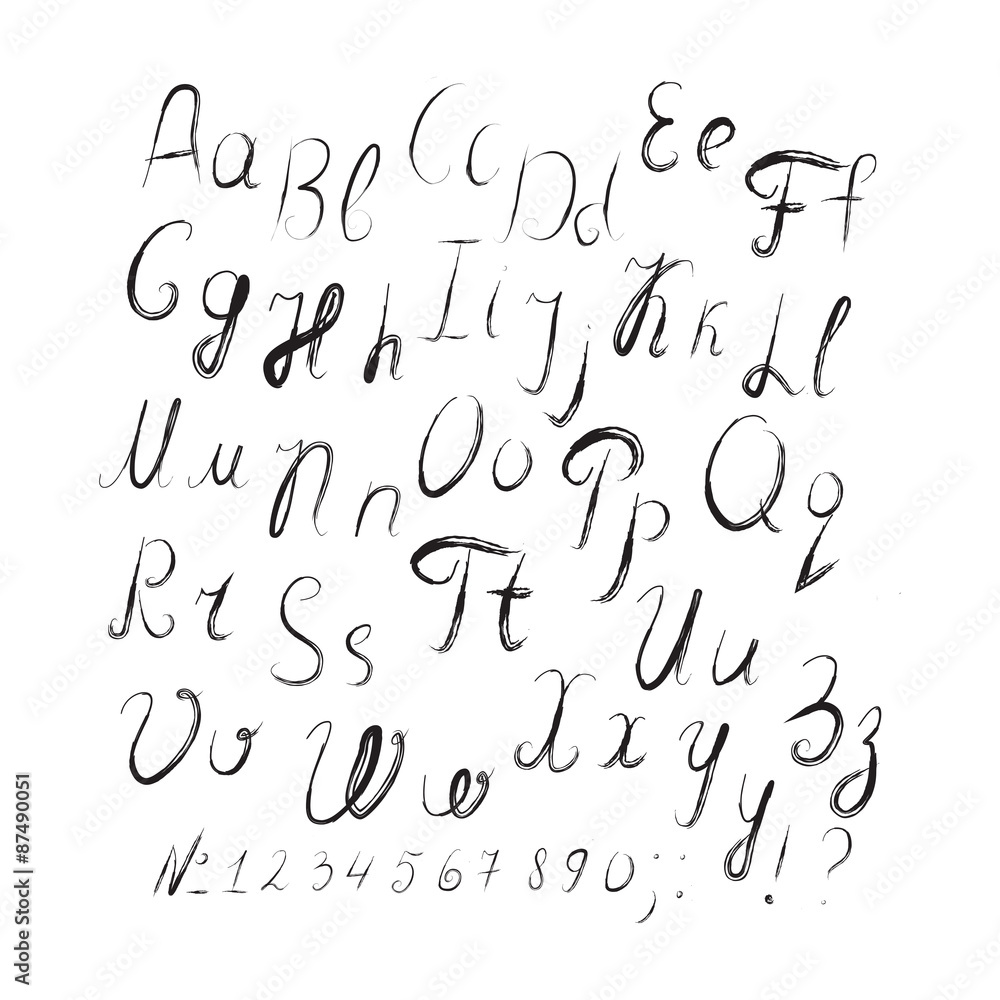 Aa Bb Cc Dd Ee Ff
Gg Hh Ii Jj Kk Ll
Mm Nn Oo Pp Qq
Rr Ss Tt Uu
Vv Ww Xx Yy Zz
№ 1 2 3 4 5 6 7 8 9 0 ; : ! ?
Adobe Stock | #87490051